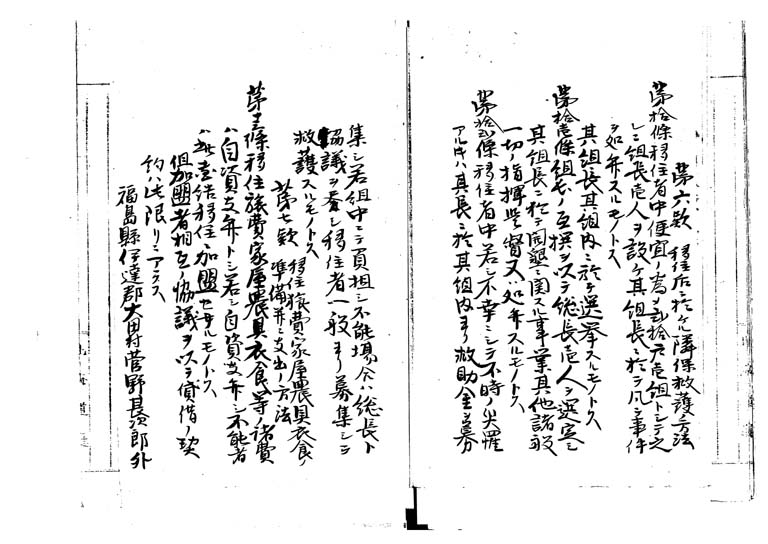 第六欵 移住后ニ於ケル隣保救護ノ方法
第拾條移住者中便宜ノ為メ弐拾戸壱組トシテ之
レニ組長壱人ヲ設ケ其組長ニ於テ凡ソ事件
ヲ処弁スルモノトス
其組長其組内ニ於テ選挙スルモノトス
第拾壱條組長ノ互撰ヲ以テ総長壱人ヲ選定シ
其組長ニ於テ開墾ニ関スル事業其他諸般
一切ノ指揮監督又ハ処弁スルモノトス
第拾弐條移住者中若シ不幸ニシテ不時ノ災罹
アル時ハ其長ニ於其組内ヨリ救助金ヲ募
集シ若組中ニテ負担シ不能場合ハ総長ト
協議ヲ遂ケ移住者一般ヨリ募集シテ
救護スルモノトス
第七欵 移住旅費家屋農具衣食ノ
準備并ニ支出ノ方法
第十三條移住旅費家屋農具衣食等ノ諸費
ハ自資支弁トシ若シ自資支弁シ不能者
ハ無壱結移住ニ加盟セサルモノトス
但加盟者相互ノ協議ヲ以テ貸借ノ契
約ハ此限リニアラス
福島縣伊達郡大田村菅野甚次郎外